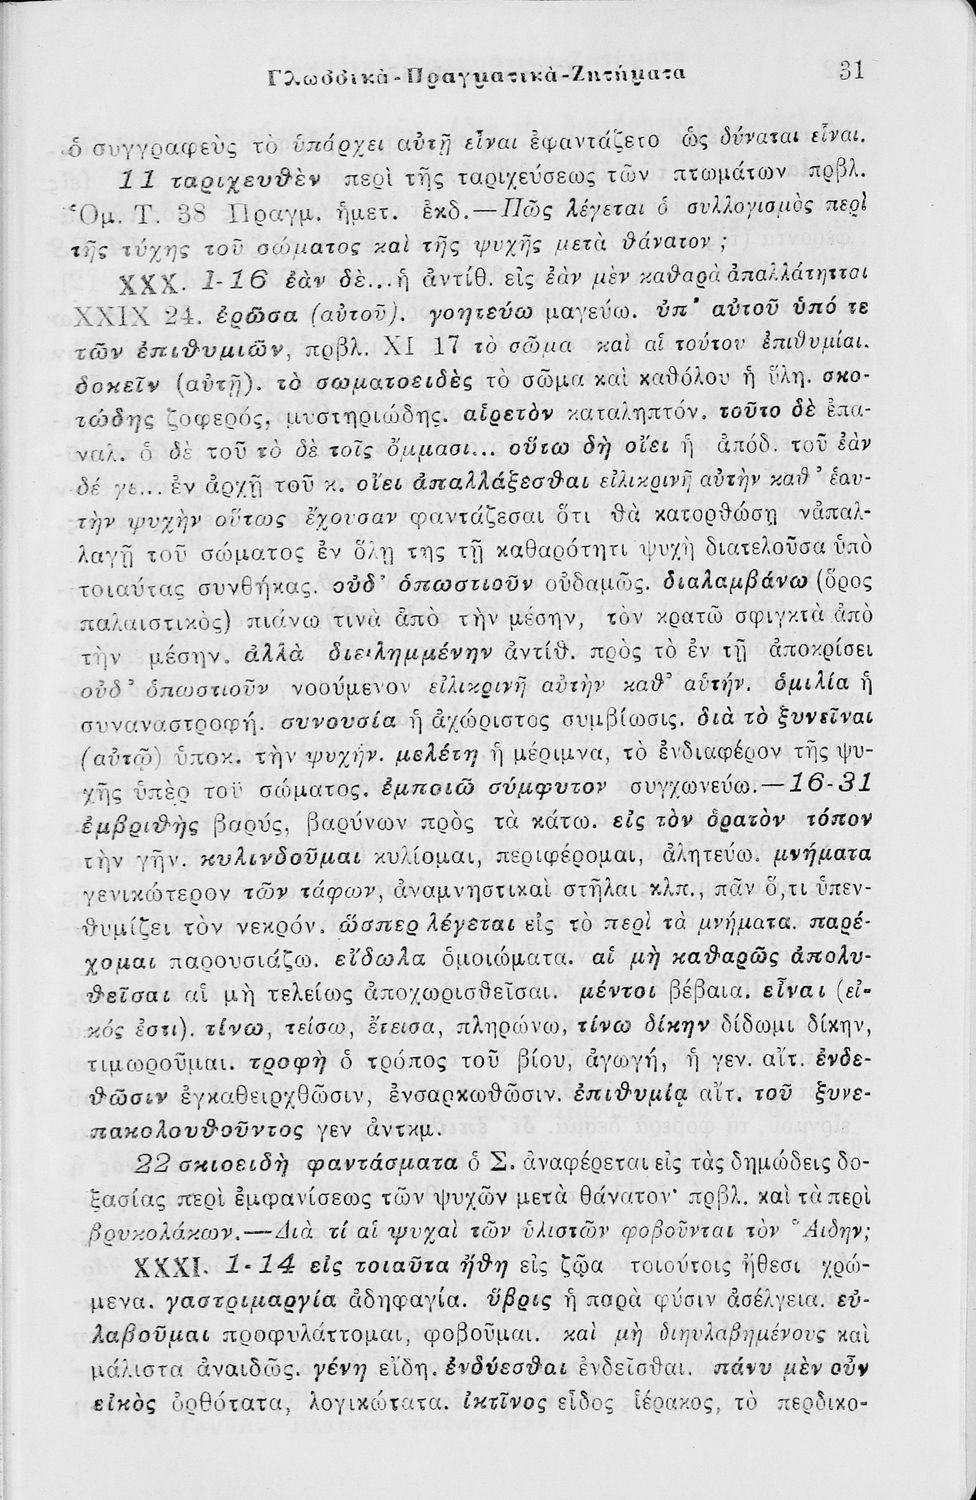 Γλωσσικὰ-Πραγματικὰ-Ζητήματα 31
ὁ συγγραφεὺς τὸ ὑπάρχει αὐτῇ εἶναι ἐφαντάζετο ὡς δύναται εἶναι.
11 ταριχευθὲν περὶ τῆς ταριχεύσεως τῶν πτωμάτων πρβλ.
Ὁμ. Τ. 38 Πραγμ. ἡμετ. ἐκδ.—Πῶς λέγεται ὁ συλλογισμὸς περὶ
τῆς τύχης τοῦ σώματος καὶ τῆς ψυχῆς μετὰ θάνατον ;
XXX. 1-16 ἐὰν δὲ...ἡ ἀντίθ. εἰς ἐὰν μὲν καθαρὰ ἀπαλλάτηττοι
XXIX 24. ἐρῶσα (αὐτοῦ). γοητεύω μαγεύω. ὑπ' αὐτοῦ ὑπό τε
τῶν ἐπιθυμιῶν, πρβλ. XI 17 τὸ σῶμα καὶ αἱ τούτου ἐπιθυμίαι.
δοκεῖν (αὐτῇ). τὸ σωματοειδὲς τὸ σῶμα καὶ καθόλου ἡ ὕλη. σκο-
τώδης ζοφερός, μυστηριώδης. αἱρετὸν καταληπτόν. τοῦτο δὲ ἐπα-
ναλ. ὁ δὲ τοῦ τὸ δὲ τοῖς ὄμμασι... οὕτω δὴ οἴει ἡ ἀπόδ. τοῦ ἐὰν
δέ γε... ἐν ἀρχῇ τοῦ κ. οἴει ἀπαλλάξεσθαι εἰλικρινῆ αὐτὴν καθ' ἑαυ-
τὴν ψυχὴν οὕτως ἔχουσαν φαντάζεσαι ὅτι θὰ κατορθώσῃ νἀπαλ-
λαγῇ τοῦ σώματος ἐν ὅλῃ της τῇ καθαρότητι ψυχὴ διατελοῦσα ὑπὸ
τοιαύτας συνθήκας. οὐδ' ὁπωστιοῦν οὐδαμῶς. διαλαμβάνω (ὅρος
παλαιστικὸς) πιάνω τινὰ ἀπὸ τὴν μέσην, τὸν κρατῶ σφιγκτὰ ἀπὸ
τὴν μέσην. ἀλλὰ διειλημμένην ἀντίθ. πρὸς τὸ ἐν τῇ ἀποκρίσει
οὐδ' ὁπωστιοῦν νοούμενον εἰλικρινῆ αὐτὴν καθ' αὑτήν. ὁμιλία ἡ
συναναστροφή. συνουσία ἡ ἀχώριστος συμβίωσις. διὰ τὸ ξυνεῖναι
(αὐτῷ) ὑποκ. τὴν ψυχήν. μελέτη ἡ μέριμνα, τὸ ἐνδιαφέρον τῆς ψυ-
χῆς ὑπὲρ τοῦ σώματος. ἐμποιῶ σύμφυτον συγχωνεύω.—16-31
ἐμβριθὴς βαρύς, βαρύνων πρὸς τὰ κάτω. εἰς τὸν ὁρατὸν τόπον
τὴν γῆν. κυλινδοῦμαι κυλίομαι, περιφέρομαι, ἀλητεύω. μνήματα
γενικώτερον τῶν τάφων, ἀναμνηστικαὶ στῆλαι κλπ., πᾶν ὅ,τι ὑπεν-
θυμίζει τὸν νεκρόν. ὥσπερ λέγεται εἰς τὸ περὶ τὰ μνήματα. παρέ-
χομαι παρουσιάζω. εἴδωλα ὁμοιώματα. αἱ μὴ καθαρῶς ἀπολυ-
θεῖσαι αἱ μὴ τελείως ἀποχωρισθεῖσαι. μέντοι βέβαια. εἶναι (εἰ-
κός ἐστι). τίνω, τείσω, ἔτεισα, πληρώνω, τίνω δίκην δίδωμι δίκην,
τιμωροῦμαι. τροφὴ ὁ τρόπος τοῦ βίου, ἀγωγή, ἡ γεν. αἴτ. ἐνδε-
θῶσιν ἐγκαθειρχθῶσιν, ἐνσαρκωθῶσιν. ἐπιθυμίᾳ αἴτ. τοῦ ξυνε-
πακολουθοῦντος γεν ἀντκμ.
22 σκιοειδῆ φαντάσματα ὁ Σ. ἀναφέρεται εἰς τὰς δημώδεις δο-
ξασίας περὶ ἐμφανίσεως τῶν ψυχῶν μετὰ θάνατον· πρβλ. καὶ τὰ περὶ
βρυκολάκων.—Διὰ τί αἱ ψυχαὶ τῶν ὑλιστῶν φοβοῦνται τὸν Ἅιδην;
XXXI. 1-14 εἰς τοιαῦτα ἤθη εἰς ζῷα τοιούτοις ἤθεσι χρώ-
μενα. γαστριμαργία ἀδηφαγία. ὕβρις ἡ παρὰ φύσιν ἀσέλγεια. εὐ-
λαβοῦμαι προφυλάττομαι, φοβοῦμαι. καὶ μὴ διηυλαβημένους καὶ
μάλιστα ἀναιδῶς. γένη εἴδη. ἐνδύεσθαι ἐνδεῖσθαι. πάνυ μὲν οὖν
εἰκὸς ὀρθότατα, λογικώτατα. ἰκτῖνος εἶδος ἱέρακος, τὸ περδικο-